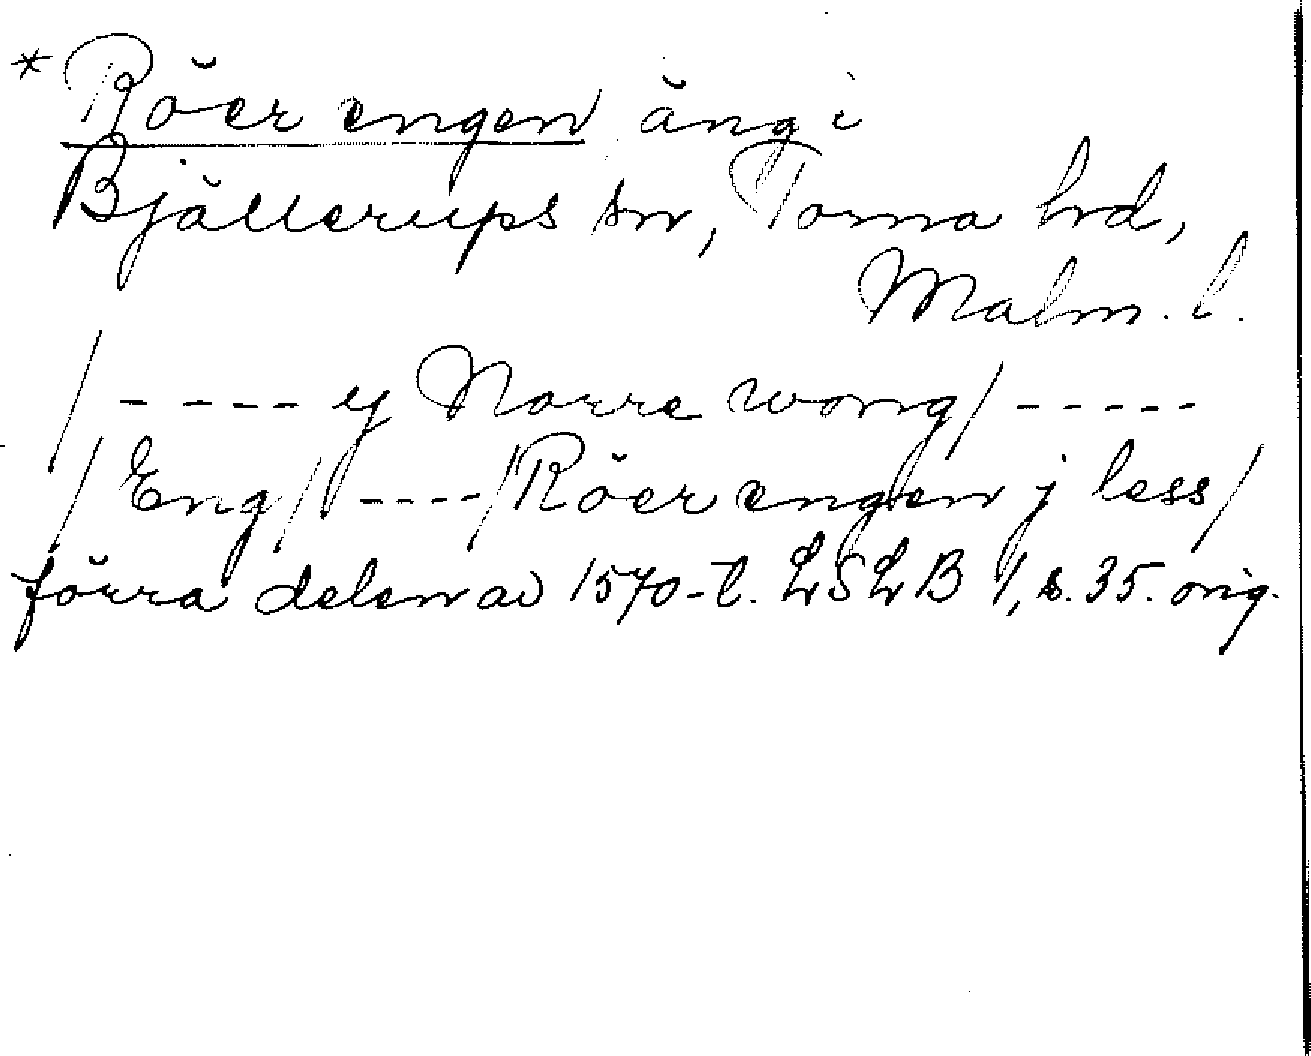 * Röer engen äng i
Bjällerups sn, Torna hrd,
Malm. l.
/ - - - - ej Norre wong / - - - - -
/ Eng / - - - - / Röer engen j less /
förra delen av 1570-t. LSLB 1, s. 35. orig.